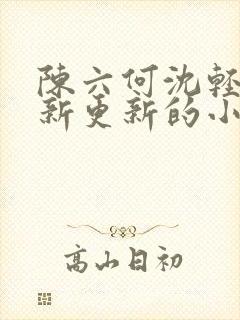 陳六何沈輕
新更新的小
高山日初